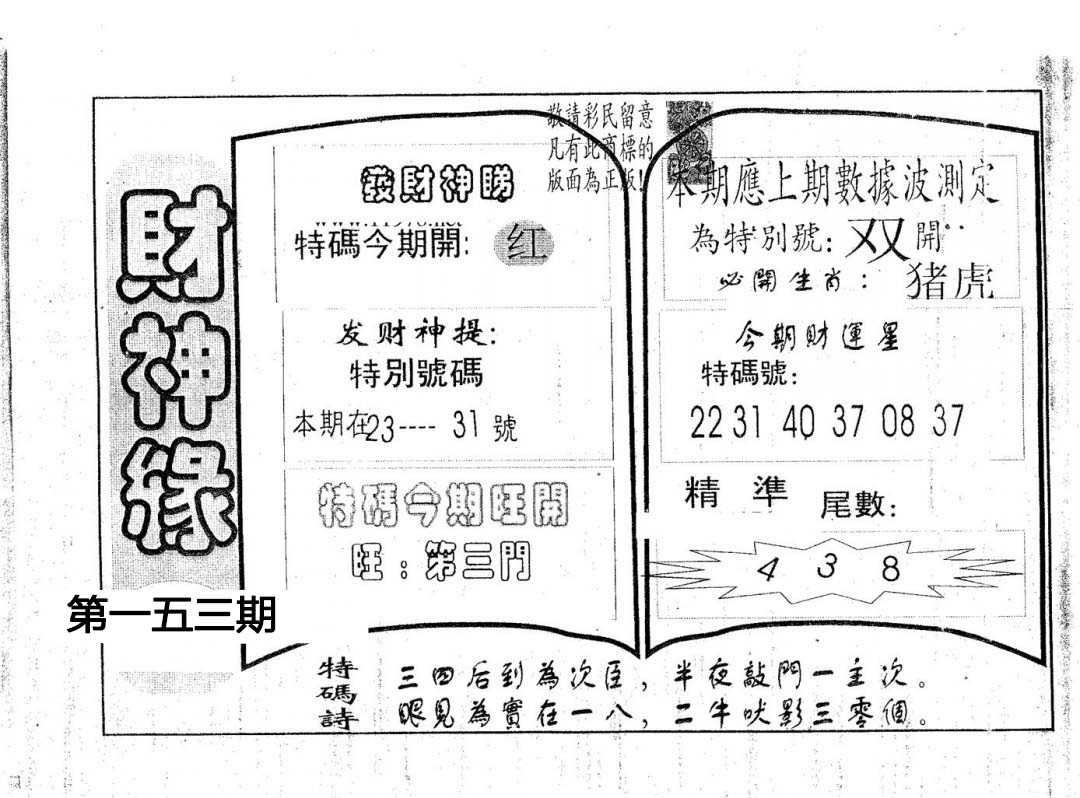 財神緣
第一五三期
敬請彩民留意
凡有此商標的
版面為正版!
發財神睇
特碼今期開: 红
发财神提:
特別號碼
本期在23----31號
特碼今期旺開
旺:第三門
本期應上期數據波測定
為特別號:双開
必開生肖:猪虎
今期財運星
特碼號:
22 31 40 37 08 37
精準 尾數:
4 3 8
特碼詩
三四后到為次臣,半夜敲門一主次。
眼見為實在一八,二牛吠影三零個。